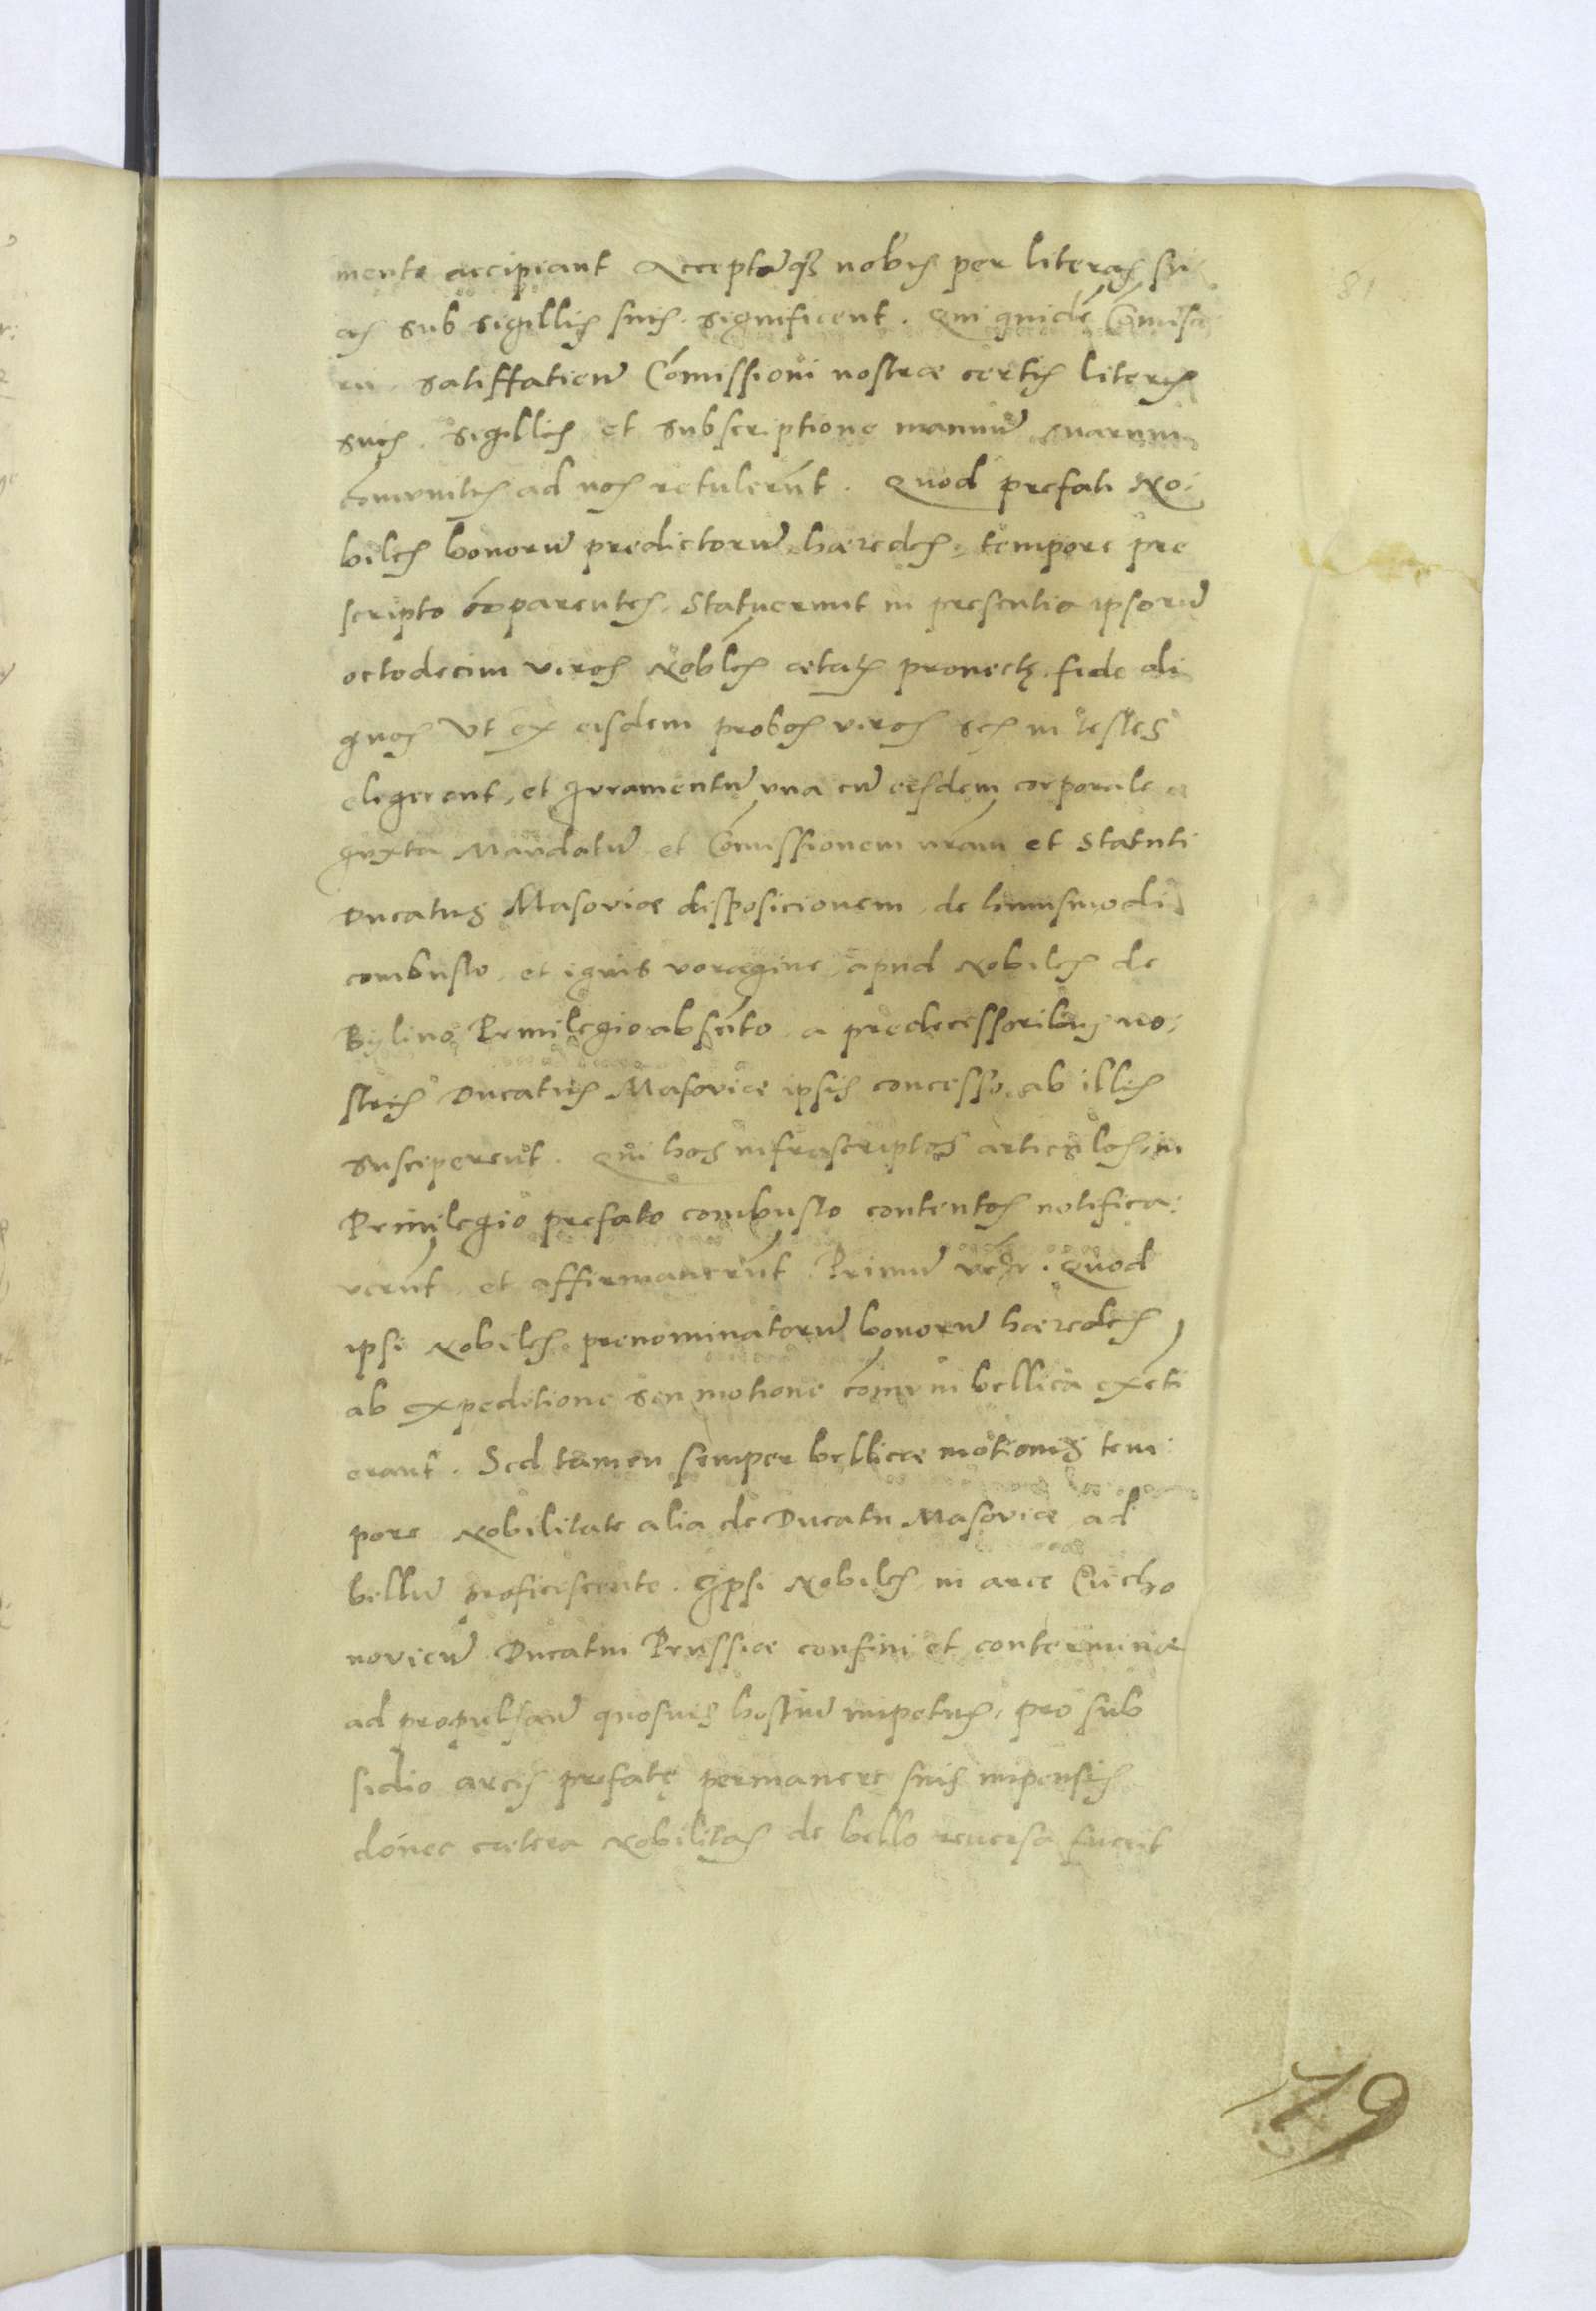 81
mento accipiant Acceptūq3 nobis per literas su
as sub sigillis suis significent. Qui quidē Cōmissa
rii satisffatieñ Cōmissioni nostræ certis literis
suis sigillis et subscriptione manuū suarum
cōmunitis ad nos retulerūt. Quod prefati No:
biles bonorū predictorū hæredes tempore pre
scripto cōparentes statuerunt in presentia ipsorū
octodecim viros Nobiles ætatis provectę fide di
gnos Vt ex eisdem probos viros sex in testes
elegerent, et Juramentū vna cū eisdem corporale
Juxta Mandatū et Cōmissionem nrām et Statuti
Ducatus Masoviæ disposicionem de huiusmodi
combusto et ignis voragine apud Nobiles de
Bylino Privilegio absūto a predecessoribus no:
stris Ducatus Masoviæ ipsis concesso ab illis
susciperent. Qui hos infrascriptos articulos in
Privilegio prefato combusto contentos notifica:
verūt et affirmaverūt. Primū Quod
ipsi Nobiles prenominatorū bonorū hæredes
ab expeditione seu motione cōmuni bellica exēti
erant. Sed tamen semper bellicæ motionis tem:
pore Nobilitate alia de Ducatu Masoviæ ad
bellū proficiscente. Ipsi Nobiles in arce Ciecho
novieñ Ducatui Prussiæ confini et conterminæ
ad propulsañ quosuis hostiū impetus, pro sub
sidio arcis prefatę permanere suis impensis
donec cætera Nobilitas de bello reuersa fuerit
79